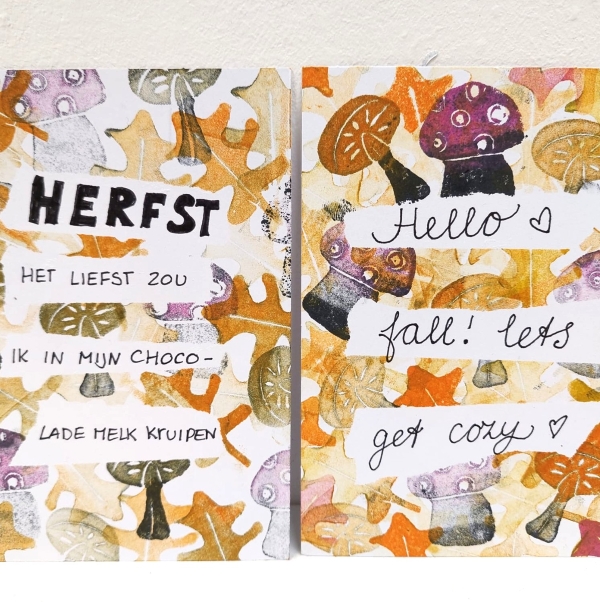 HERFST
HET LIEFST ZOU
IK IN MIJN CHOCO-
LADE MELK KRUIPEN
Hello ♡
fall! lets
get cozy ♡